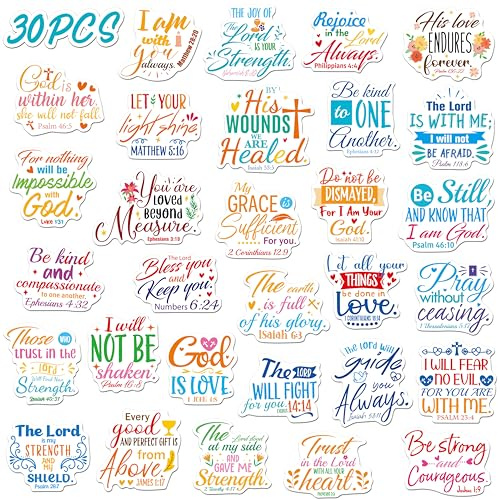 30PCS
I am
with
you
always.
Matthew 28:20
THE JOY OF
The
Lord
IS YOUR
Strength.
Rejoice
in the
Lord
Always.
Philippians 4:4
His love
ENDURES
forever.
God is
within her,
she will not fall.
Psalm 46:5
LET YOUR
light shine
MATTHEW 5:16
BY
His
WOUNDS
WE ARE
Healed.
Isaiah 53:5
Be kind
to ONE
Another.
Ephesians 4:32
The Lord
IS WITH ME;
I will not
BE AFRAID.
Psalm 118:6
For nothing
will be
Impossible
with
God.
Luke 1:37
You are
LOVED
Beyond
Measure.
Ephesians 3:19
My
GRACE is
Sufficient
For you.
2 Corinthians 12:9
Do not be
DISMAYED,
For I Am Your
God.
Isaiah 41:10
Be Still
AND KNOW THAT
I am God.
Psalm 46:10
Be kind
and
compassionate
to one another.
Ephesians 4:32
The Lord
Bless you
and
Keep you.
Numbers 6:24
The earth
is full
of his glory.
ISaiah 6:3
Let all your
THINGS
be done in
Love
Pray
without
ceasing.
1 Thessalonians 5:17
Those WHO
trust in the
lord
Will Find New
Strength.
I will
NOT BE
shaken.
Psalm 16:8
God
IS LOVE
1 JOHN 4:8
The LORD
WILL FIGHT
for you.
14:14
The Lord will
guide
you
Always.
Isaiah 58:11
I WILL FEAR
NO EVIL
FOR YOU ARE
WITH ME.
PSALM 23:4
The Lord
IS MY
STRENGTH
AND MY
SHIELD.
PSALM 28:7
Every
good
AND PERFECT GIFT IS
from
Above.
JAMES 1:17
The Lord stood
at my side
AND
GAVE ME
Strength.
2 Timothy 4:17
Trust
in the Lord
WITH ALL YOUR
heart
Be strong
and
Courageous.
Joshua 1:9